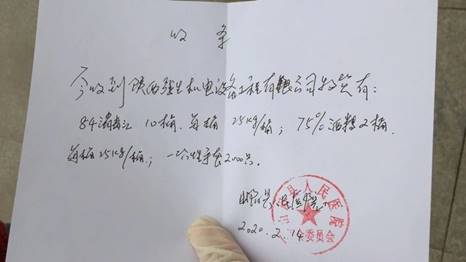 收条
今收到陕西强生机电设备工程有限公司物资有:
84消毒液 10桶,每桶25kg/桶;75%酒精2桶,
每桶25kg/桶;一次性手套2000只。
县人民医院
委员会
2020.2.14